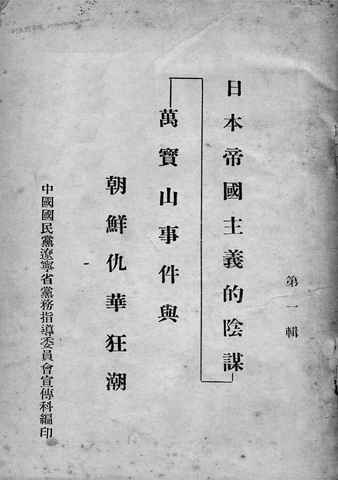 第一輯
日本帝國主義的陰謀
萬寶山事件與
朝鮮仇華狂潮
中國國民黨遼寧省黨務指導委員會宣傳科編印